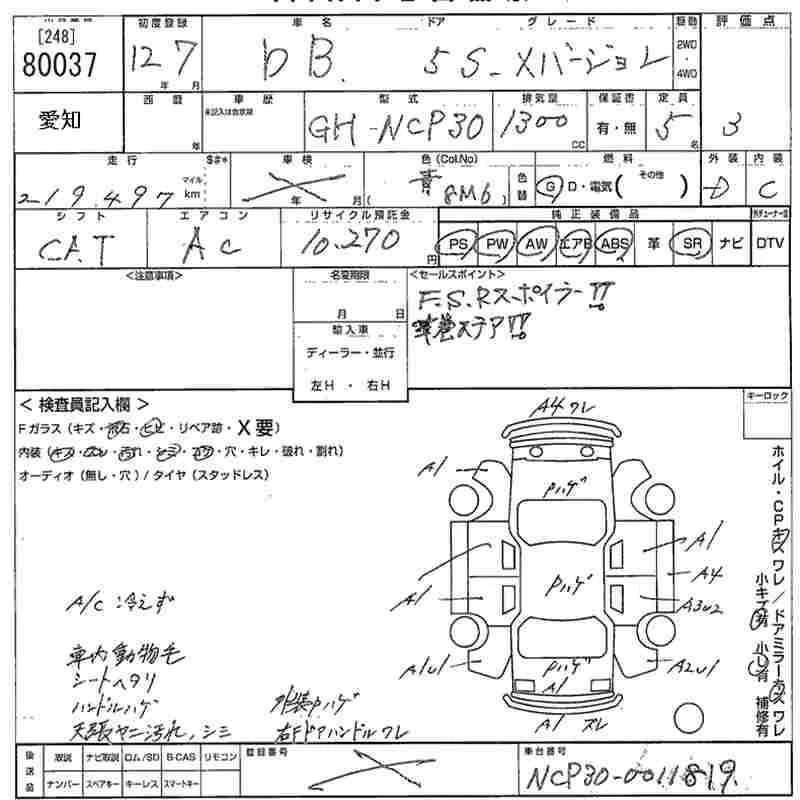 出品番号 初度登録 車名 ドア グレード 駆動 評価点
[248]
80037 12 7 bB 5 S-Xバージョン 2WD・4WD
年 月
愛知 西暦 年 車歴 未記入は自家用 型式 GH-NCP30 排気量 1300 CC 保証書 有・無 定員 5名 3
走行 $#* 車検 色(Col.No) 燃料 外装 内装
219,497 マイル km 年 月 青 (8M6) 色替 G D・電気( その他 ) D C
シフト エアコン リサイクル預託金 純正装備品
CAT AC 10,270円 PS PW AW エアB ABS 革 SR ナビ DTV
<注意事項> 名変期限 <セールスポイント>
月 日 F.S.Rスポイラー!!
輸入車
ディーラー・並行
左H・右H
<検査員記入欄> キーロック
Fガラス(キズ・飛石・ヒビ・リペア跡・X要)
内装(キズ・スレ・汚れ・シミ・コゲ・穴・キレ・破れ・割れ)
オーディオ(無し・穴)/タイヤ(スタッドレス)
A4ワレ
A1
Pハゲ
A1
Pハゲ
A4
A1
A3U2
A1U1
Pハゲ
A1
A2U1
A1 ズレ
ホイル・CPキズワレ/ドアミラーキズワレ
小キズ有 小U有 補修有
A/C 冷えず
車内動物毛
シートヘタリ
ハンドルハゲ 外装Pハゲ
天張ヤニ汚れ,シミ 右Fドアハンドルワレ
後送品 取説 ナビ取説 ロム/SD B-CAS リモコン 登録番号 車台番号
ナンバー スペアキー キーレス スマートキー NCP30-0011819